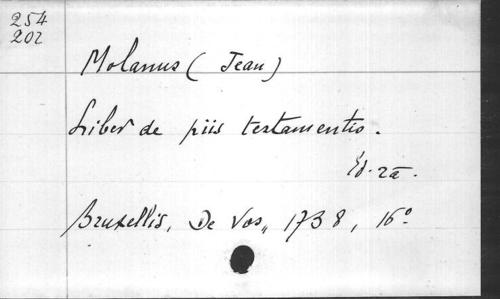 254
202
Molanus (Jean)
Liber de piis testamentis.
Ed. 2a.
Bruxellis, De Vos,, 1738, 16°